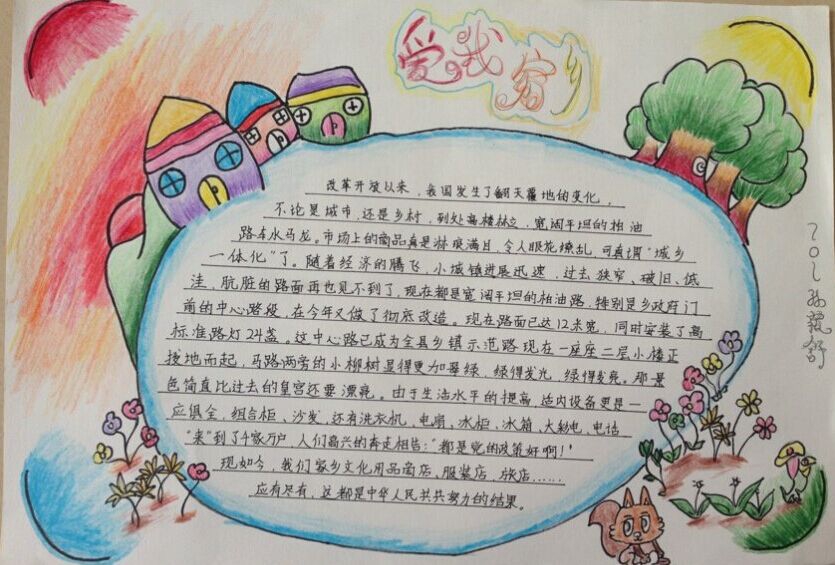 爱我家乡
改革开放以来，我国发生了翻天覆地的变化，
不论是城市，还是乡村，到处高楼林立，宽阔平坦的柏油
路车水马龙。市场上的商品真是琳琅满目，令人眼花缭乱，可真谓“城乡
一体化”了。随着经济的腾飞，小城镇进展迅速，过去狭窄、破旧、低
洼、肮脏的路面再也见不到了，现在都是宽阔平坦的柏油路，特别是乡政府门
前的中心路段，在今年又做了彻底改造。现在路面已达12米宽，同时安装了高
标准路灯24盏。这中心路已成为全县乡镇示范路现在一座座二层小楼正
拔地而起，马路两旁的小柳树显得更加翠绿，绿得发光，绿得发亮。那景
色简直比过去的皇宫还要漂亮。由于生活水平的提高，适内设备更是一
应俱全，组合柜、沙发、还有洗衣机、电扇、冰柜、冰箱、大彩电、电话
“来”到了千家万户，人们高兴的奔走相告：“都是党的政策好啊！”
现如今，我们家乡文化用品商店、服装店、旅店……
应有尽有，这都是中华人民共共努力的结果。
701 孙